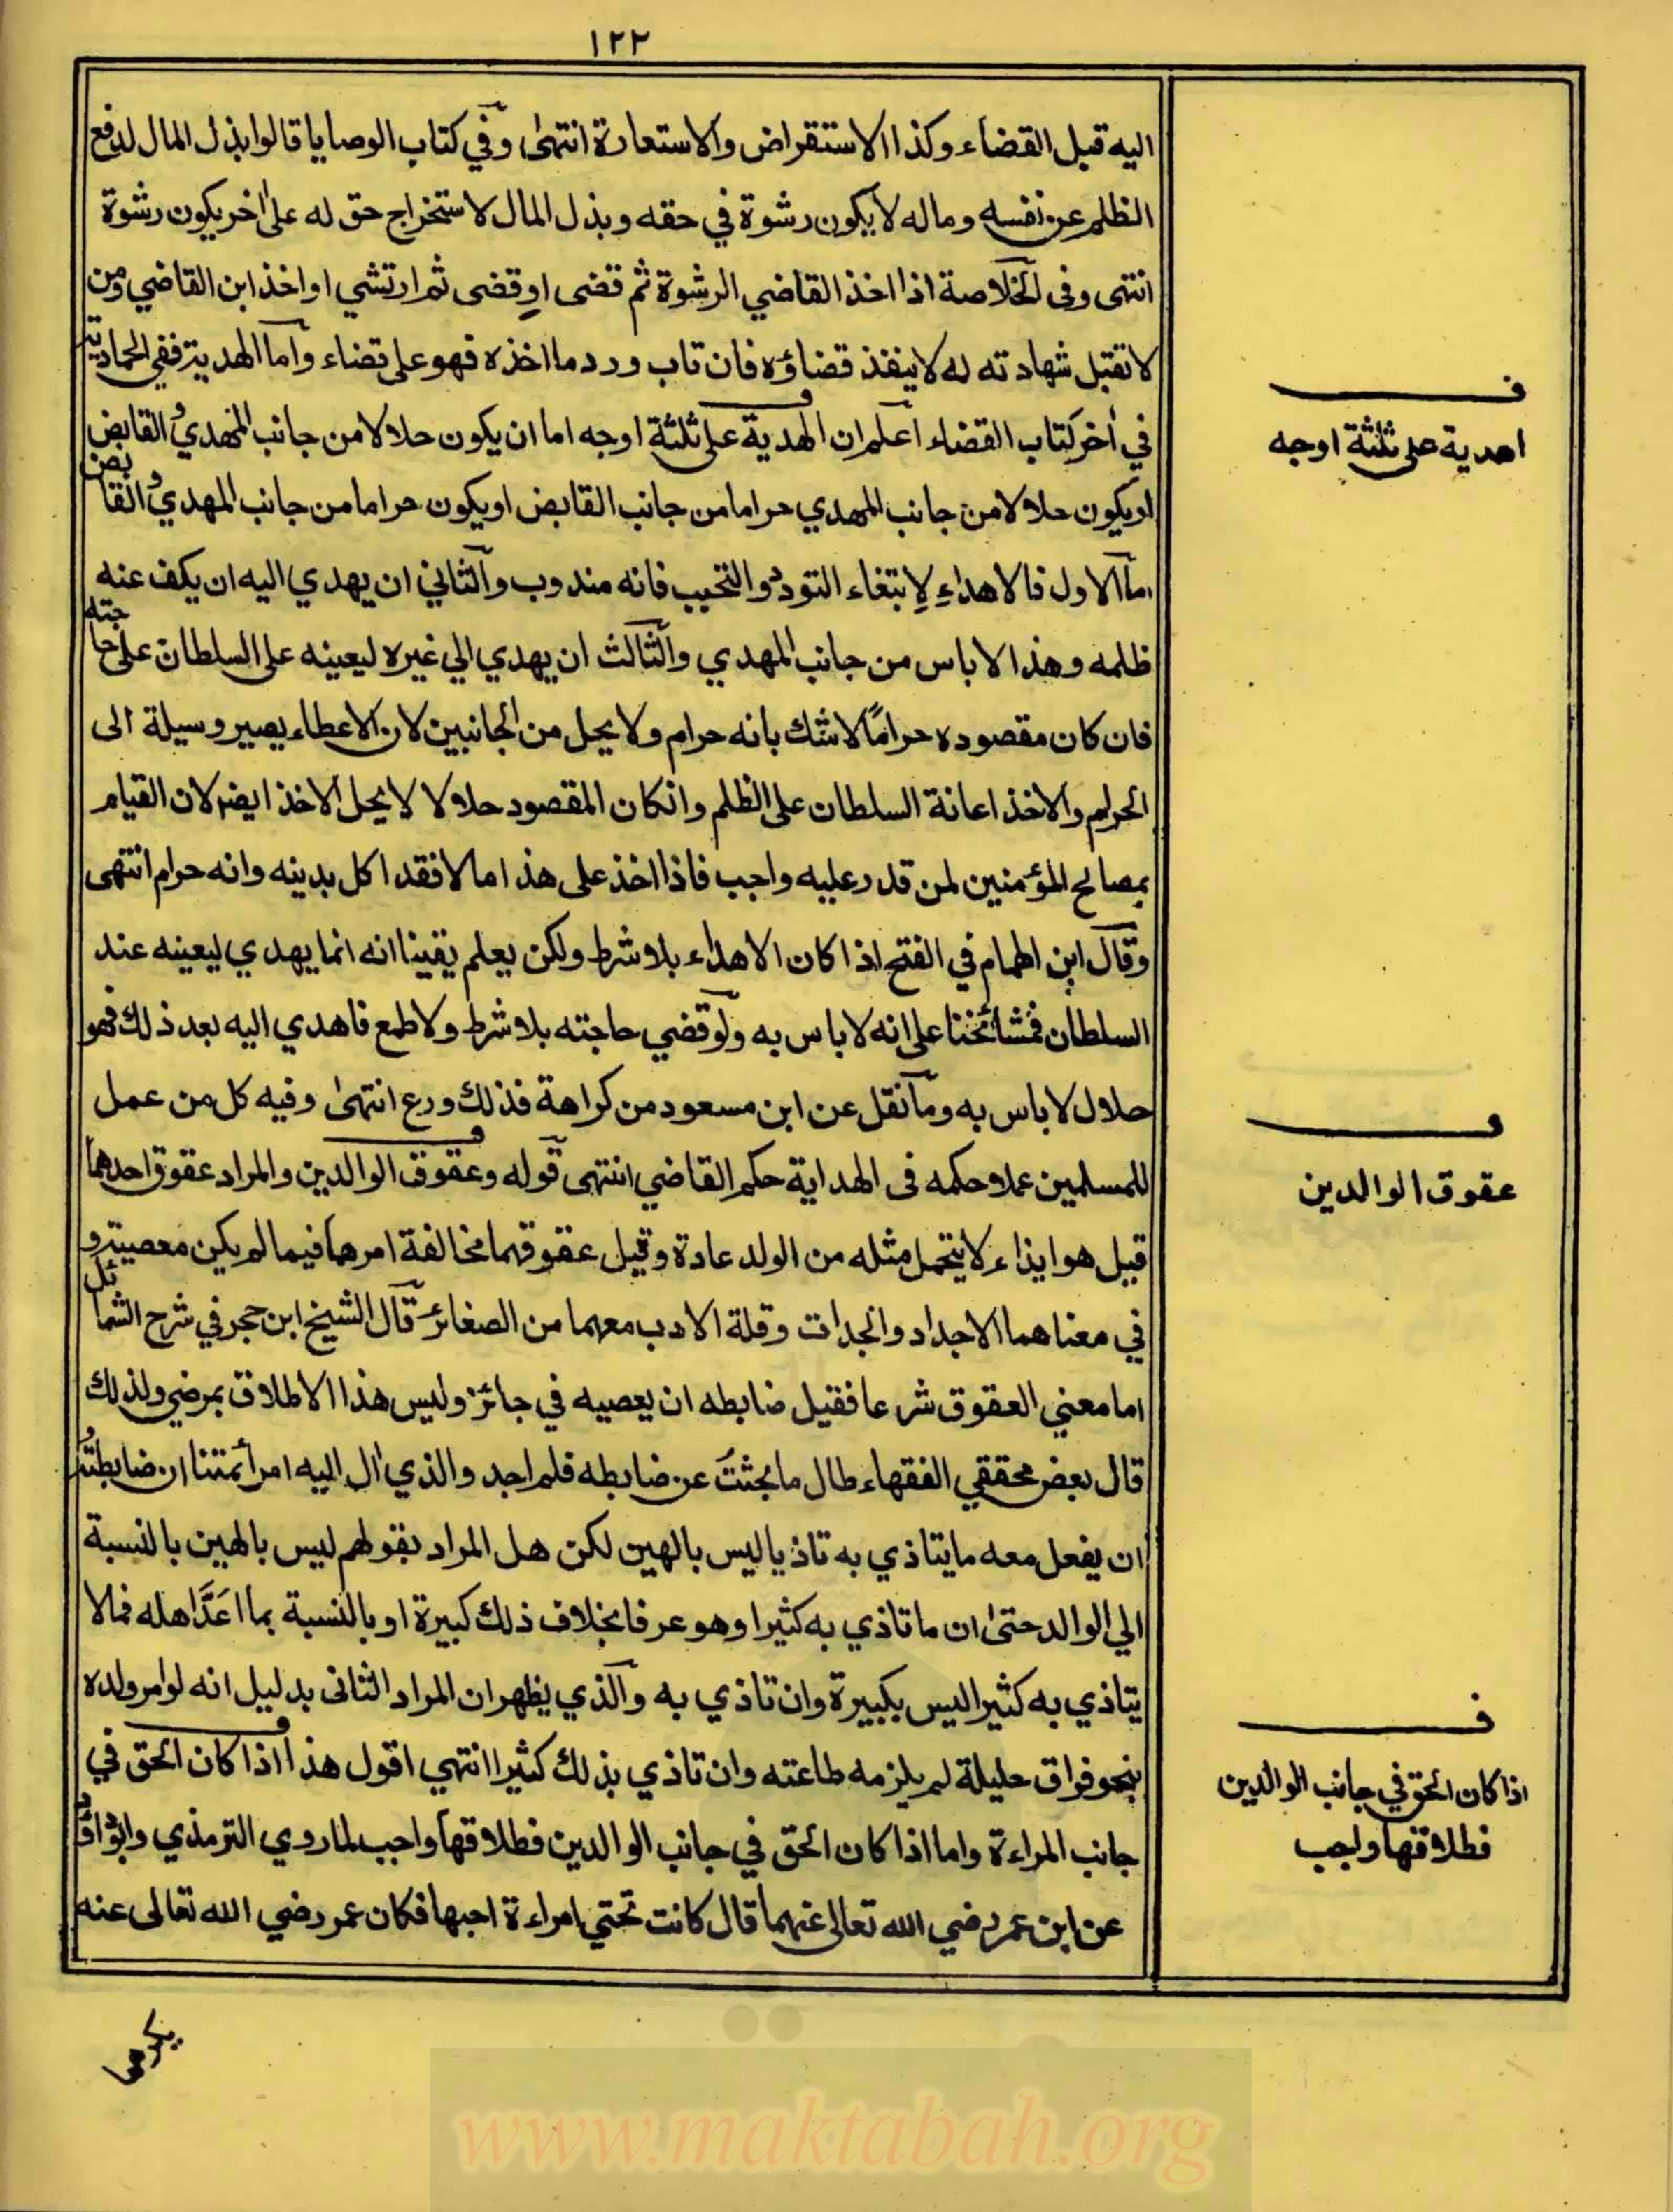 ١٢٢
اليه قبل القضاء وكذا الاستقراض والاستعارة انتهى وفي كتاب الوصايا قالوا بذل المال لدفع
الظلم عن نفسه وماله لا يكون رشوة في حقه وبذل المال لاستخراج حق له على اخر يكون رشوة
انتهى وفى الخلاصة اذا اخذ القاضي الرشوة ثم قضى او قضى ثم ارتشي او اخذ ابن القاضي ومن
لا تقبل شهادته له لا ينفذ قضاؤه فان تاب ورد ما اخذه فهو على قضاء واما الهدية ففي الحمادية
في اخر كتاب القضاء اعلم ان الهدية على ثلثة اوجه اما ان يكون حلالا من جانب المهدي والقابض
او يكون حلالا من جانب المهدي حراما من جانب القابض او يكون حراما من جانب المهدي والقابض
اما الاول فالاهداء لابتغاء التودد والتحبب فانه مندوب والثاني ان يهدي اليه ان يكف عنه
ظلمه وهذا لا باس من جانب المهدي والثالث ان يهدي الي غيره ليعينه على السلطان على حاجته
فان كان مقصوده حرامًا لا شك بانه حرام ولا يحل من الجانبين لان الاعطاء يصير وسيلة الى
الحرام والاخذ اعانة السلطان على الظلم وانكان المقصود حلالا لا يحل الاخذ ايضا لان القيام
بمصالح المؤمنين لمن قدر عليه واجب فاذا اخذ على هذا مالا فقد اكل بدينه وانه حرام انتهى
وقال ابن الهمام في الفتح اذا كان الاهداء بلا شرط ولكن يعلم يقينا انه انما يهدي ليعينه عند
السلطان فمشائخنا على انه لا باس به ولو قضي حاجته بلا شرط ولا طمع فاهدي اليه بعد ذلك فهو
حلال لا باس به وما نقل عن ابن مسعود من كراهة فذلك ورع انتهى وفيه كل من عمل
للمسلمين عملا حكمه فى الهداية حكم القاضي انتهى قوله وعقوق الوالدين والمراد عقوق احدهما
قيل هو ايذاء لا يتحمل مثله من الولد عادة وقيل عقوقهما مخالفة امرهما فيما لم يكن معصية و
في معناهما الاجداد والجدات وقلة الادب معهما من الصغائر قال الشيخ ابن حجر في شرح الشمائل
اما معني العقوق شرعا فقيل ضابطه ان يعصيه في جائز وليس هذا الاطلاق بمرضي ولذلك
قال بعض محققي الفقهاء طال ما بحثت عن ضابطه فلم اجد والذي ال اليه امر أئمتنا ان ضابطته
ان يفعل معه ما يتاذي به تاذيا ليس بالهين لكن هل المراد بقولهم ليس بالهين بالنسبة
الي الوالد حتى ان ما تاذي به كثيرا وهو عرفا بخلاف ذلك كبيرة او بالنسبة بما اعَدَّ اهله فمالا
يتاذي به كثيرا ليس بكبيرة وان تاذي به والذي يظهر ان المراد الثانى بدليل انه لو امر ولده
بنحو فراق حليلة لم يلزمه طاعته وان تاذي بذلك كثيرا انتهي اقول هذا اذا كان الحق في
جانب المراءة واما اذا كان الحق في جانب الوالدين فطلاقها واجب لما روي الترمذي وابوداؤد
عن ابن عمر رضي الله تعالى عنهما قال كانت تحتي امراءة احبها فكان عمر رضي الله تعالى عنه
يكرهها
ف
اهدية على ثلثة اوجه
ف
عقوق الوالدين
ف
اذا كان الحق في جانب الوالدين
فطلاقها واجب
www.maktabah.org